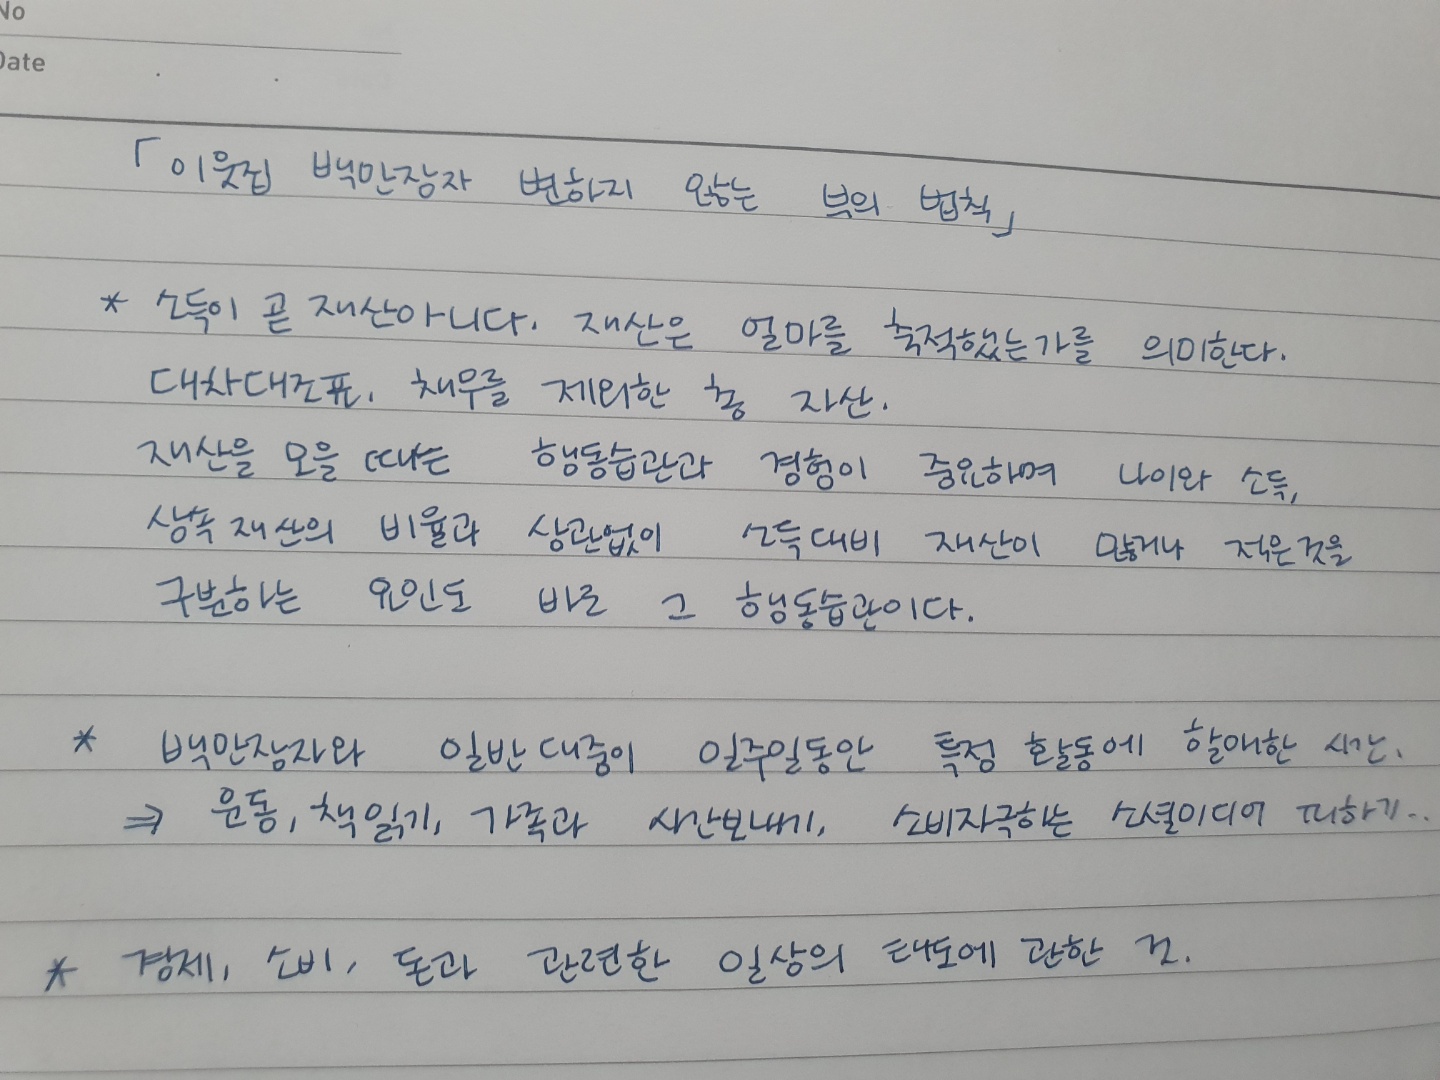 No
Date
「이웃집 백만장자 변하지 않는 부의 법칙」
* 소득이 곧 재산아니다. 재산은 얼마를 축적했는가를 의미한다.
대차대조표. 채무를 제외한 총 자산.
재산을 모을 때는 행동습관과 경험이 중요하며 나이와 소득,
상속 재산의 비율과 상관없이 소득대비 재산이 많거나 적은것을
구분하는 요인도 바로 그 행동습관이다.
* 백만장자와 일반대중이 일주일동안 특정 활동에 할애한 시간.
⇒ 운동, 책읽기, 가족과 시간보내기, 소비자극하는 소셜미디어 피하기..
* 경제, 소비, 돈과 관련한 일상의 태도에 관한 것.